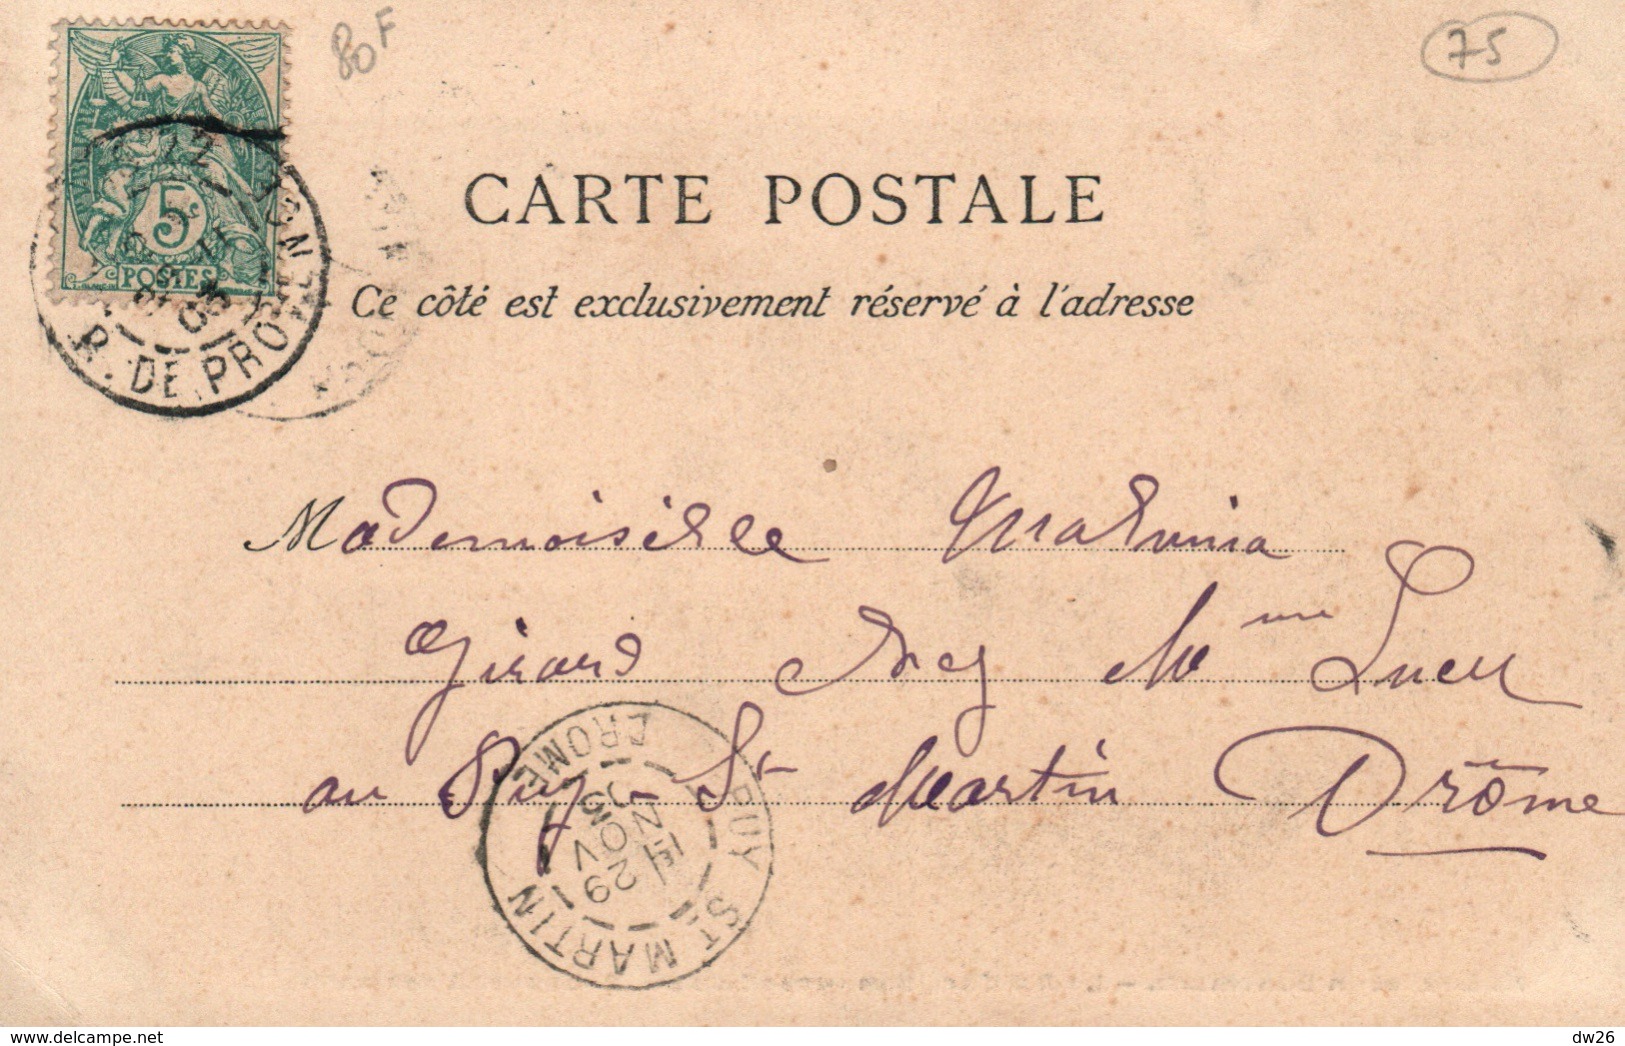 80F
75
5c
POSTES
R. DE PROVENCE
CARTE POSTALE
Ce côté est exclusivement réservé à l'adresse
Mademoiselle Malvina
Girard chez Mme Lucu
au Puy-St Martin Drôme
PUY ST MARTIN
DROME
29
NOV
03
www.delcampe.net
dw26